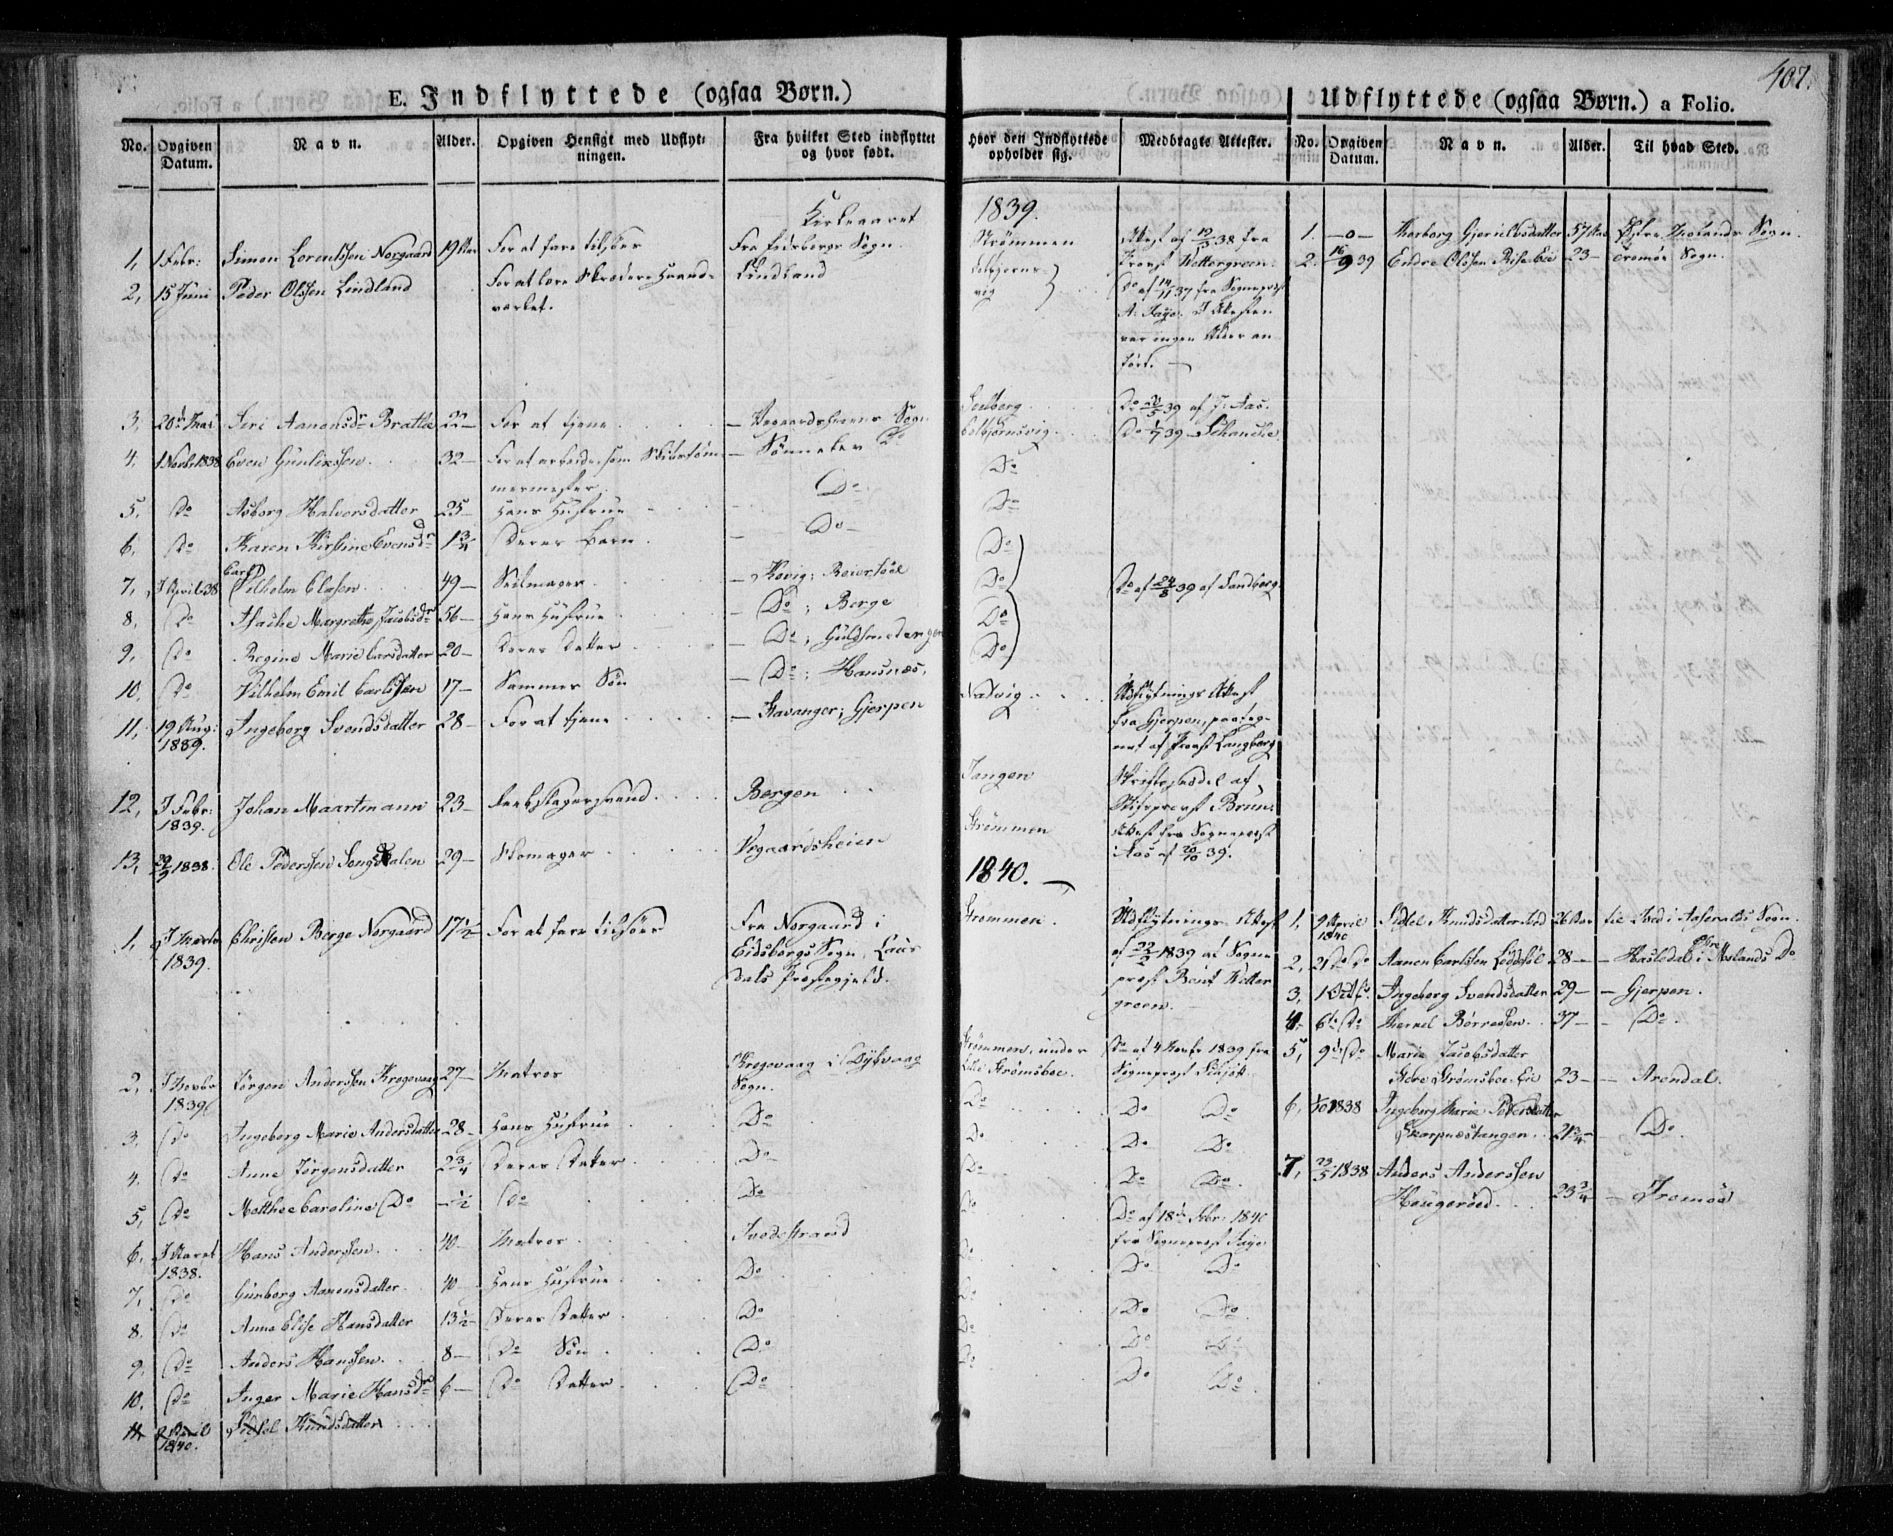 407.
E. Indflyttede (ogsaa Børn.)
No. Opgiven Datum. Navn. Alder. Opgiven Hensigt med Udflytningen. Fra hvilket Sted indflyttet og hvor født. Hvor den Indflyttede opholder sig. Medbragte Attester.
Kirkeaaret 1839.
1, 1 Febr: Simon Lorentssen Norgaard 19 Aar For at fare tilsøes Fra Eidsborgs Sogn. Strømmen Attest af 12/5 38 fra Provst Wettergreen.
2, 15 Juni Peder Olssen Lindland For at lære Skræder-Haandværket. Lindland Do af 14/11 37 fra Sognepræst A. Faye. I Attesten var ingen Alder anført. —
3, 20de Mai Siri Aanonsdr Bratte 22 — For at tjene — Vegaardsheiens Sogn Solberg Do 20/5 39 af J. Aas.
4, 1 Novbr 1838 Even Gunlixsen 32 — For at arbeide som Skibstømmermester — Sønneløv Do Colbjørnsvig Do 1/7 39 Schanche
5, Do Asborg Halvorsdatter 25 — Hans Hustrue — Do Do
6, Do Karen Kirstine Evensdr 1 3/4 Deres Barn — Do — Do
7, J April 38 Carl Vilhelm Clasen 49 — Seilmager — Do Do af 24/8 39 af Sandberg
8, Do Margrethe Jacobsdr 56 — Hans Hustrue — Do; Berge Do
9, Do Regine Marie Carsdatter 20 — Deres Datter — Do; Guldsmedengen Do
10, Do Vilhelm Emil Carlssen 17 — Sammes Søn — Do; Hansnæs, Do
11, 19 Aug: 1839. Ingeborg Svendsdatter 28 — For at tjene — Stavanger; Gjerpen Natvig Udflytnings Attest fra Gjerpen, paategnet af Provst Langberg
12, J Febr: 1839. Johan Maartmann 23 — Reebslagersvend Bergen Tangen Skriftesseddel af Stiftsprovst Bruun
13, 22/9 1838. Ole Pederssen Songedalen 29 — Skomager Vegaardsheien Strømmen Attest fra Sognepræst Aas af 20/10 39.
1840. —
1, J Marts 1839. Christen Berge Norgaard 17 1/2 For at fare tilsøes Fra Norgaard i Eidsborgs Sogn, Laurdals Præstegjeld. Strømmen. Udflytnings Attest af 22/2 1839 af Sognepræst Bent Wettergreen.
2, J Novbr 1839. Jørgen Anderssen Krogevaag 27 — Matros Krogevaag i Dybvaag Sogn. Strømmen, under Lille Strømsboe. Do af 4 Novbr 1839 fra Sognepræst Schjøtt
3, Do Ingeborg Marie Andersdatter 28 — Hans Hustrue Do Do Do Do
4, Do Anne Jørgensdatter 2 3/4 Deres Datter Do Do Do Do
5, Do Matthea Caroline Do — 1/2 Do Do Do Do Do.
6, J Marts 1838. Hans Anderssen 40 — Matros Tvedestrand Do Do af 18de Febr: 1840 fra Sognepræst Faye
7, Do Gunborg Aanonsdatter 40 — Hans Hustrue Do Do Do Do
8, Do Anne Elise Hansdatter 13 1/2 — Deres Datter Do Do Do
9, Do Anders Hanssen 8 — Do Søn Do Do Do Do
10, Do Inger Marie Hansdr 6 — Do Datter Do Do Do Do.
11, 9 April 1840. Sidsel Knudsdatter
Udflyttede (ogsaa Børn.) a Folio.
No. Opgiven Datum. Navn. Alder. Til hvad Sted.
1. — o — Marborg Gjeruldsdatter 57 Aar Østre Molands Sogn.
2. 16/9 39 Endre Olssen Risø 23 — Tromøe Sogn.
1, 9 April 1840 Sidsel Knudsdatter 26 Aar til Tved i Aaseralds Sogn.
2, 21 Do Do Aanon Carlssen Løddesøl 28 — — Hasledal i Østre Molands Do
3, Ingeborg Svendsdatter 29 — — Gjerpen.
4. 6te Do Børressen 37 — — Do.
5, 9de Do Maria Jacobsdatter Store Strømsboe Eie 23 — — Arendal.
6, 1838 Ingeborg Marie Pedersdatter Skarpnæstangen 21 3/4 — Do.
7, 23/5 1838 Anders Anderssen Haugerøed 23 3/4 — Tromøe